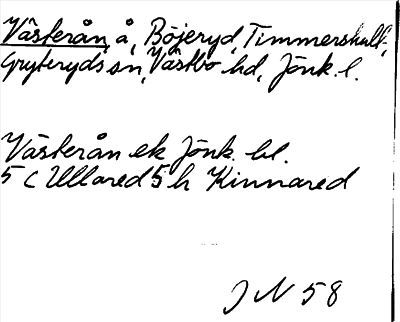 Västerån, å, Böjeryd, Timmershult,
Gryteryds sn, Västbo hd, Jönk. l.
Västerån ek Jönk. bl.
5 c Ullared 5 h Kinnared
J N 58